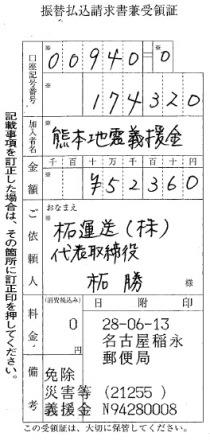 振替払込請求書兼受領証
口座記号番号
00940=0
174320
加入者名
熊本地震義援金
金額
千 百 十 万 千 百 十 円
¥52360
ご依頼人
おなまえ
柘運送(株)
代表取締役
柘 勝
様
料金
(消費税込み)
0
円
日附印
28-06-13
名古屋稲永
郵便局
備考
免除
災害等 (21255)
義援金 N94280008
この受領証は、大切に保管してください。
記載事項を訂正した場合は、その箇所に訂正印を押してください。